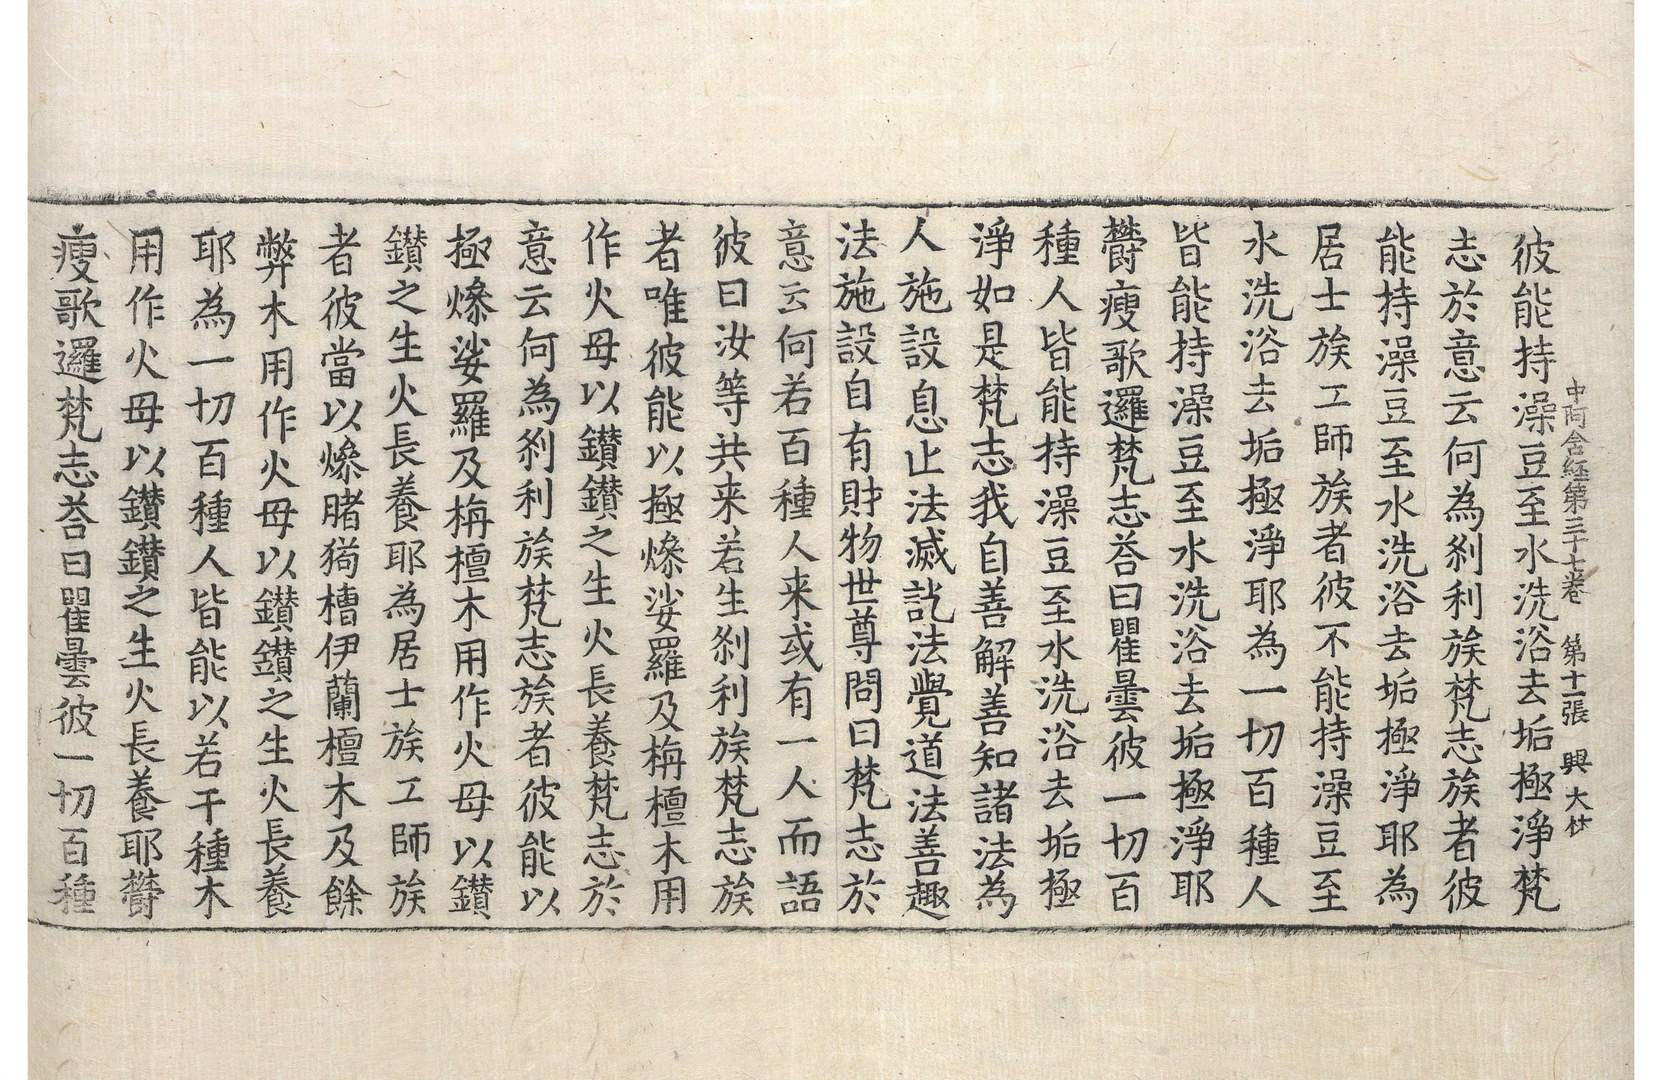 中阿含経第三十七巻 第十一張 興 大林
彼能持澡豆至水洗浴去垢極淨梵
志於意云何為刹利族梵志族者彼
能持澡豆至水洗浴去垢極淨耶為
居士族工師族者彼不能持澡豆至
水洗浴去垢極淨耶為一切百種人
皆能持澡豆至水洗浴去垢極淨耶
欝瘦歌邏梵志荅曰瞿曇彼一切百
種人皆能持澡豆至水洗浴去垢極
淨如是梵志我自善解善知諸法為
人施設息止法滅訖法覺道法善趣
法施設自有財物世尊問曰梵志於
意云何若百種人来或有一人而語
彼曰汝等共来若生刹利族梵志族
者唯彼能以極燥娑羅及栴檀木用
作火母以鑚鑚之生火長養梵志於
意云何為刹利族梵志族者彼能以
極燥娑羅及栴檀木用作火母以鑚
鑚之生火長養耶為居士族工師族
者彼當以燥賭猪槽伊蘭檀木及餘
弊木用作火母以鑚鑚之生火長養
耶為一切百種人皆能以若干種木
用作火母以鑚鑚之生火長養耶欝
瘦歌邏梵志荅曰瞿曇彼一切百種